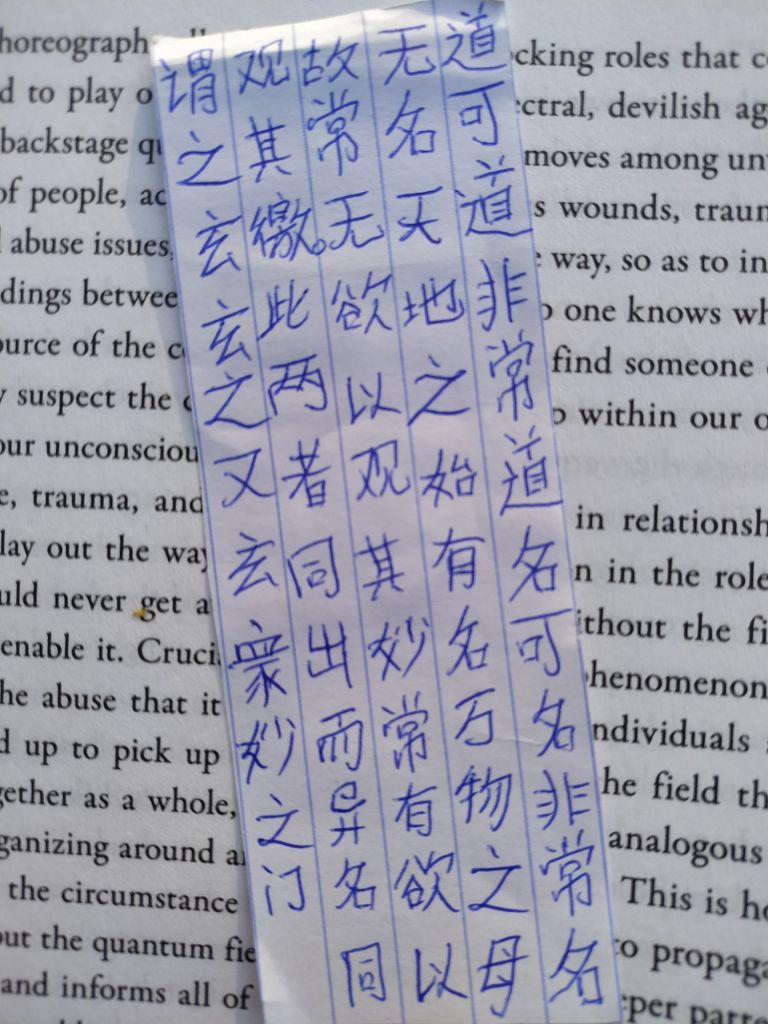 道可道非常道名可名非常名
无名天地之始有名万物之母
故常无欲以观其妙常有欲以
观其徼。此两者同出而异名同
谓之玄玄之又玄衆妙之门
horeograph
d to play o
backstage q
of people, ac
abuse issues,
dings betwee
ource of the c
y suspect the
our unconsciou
e, trauma, and
lay out the way
uld never get a
enable it. Cruci
he abuse that it
d up to pick up
gether as a whole,
ganizing around a
the circumstance
out the quantum fie
and informs all of
cking roles that c
ctral, devilish ag
moves among un
s wounds, traum
way, so as to in
o one knows wh
find someone
within our o
in relationsh
n in the role
ithout the fi
henomenon
ndividuals
he field th
analogous
This is ho
to propaga
eper patte